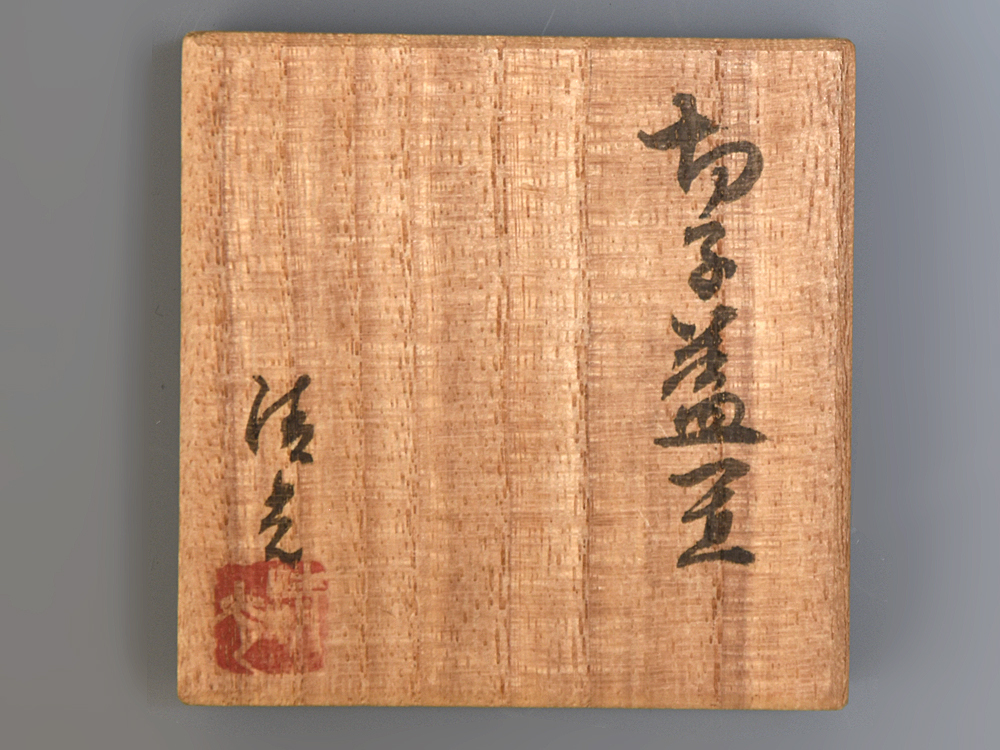 切子蓋置
清光